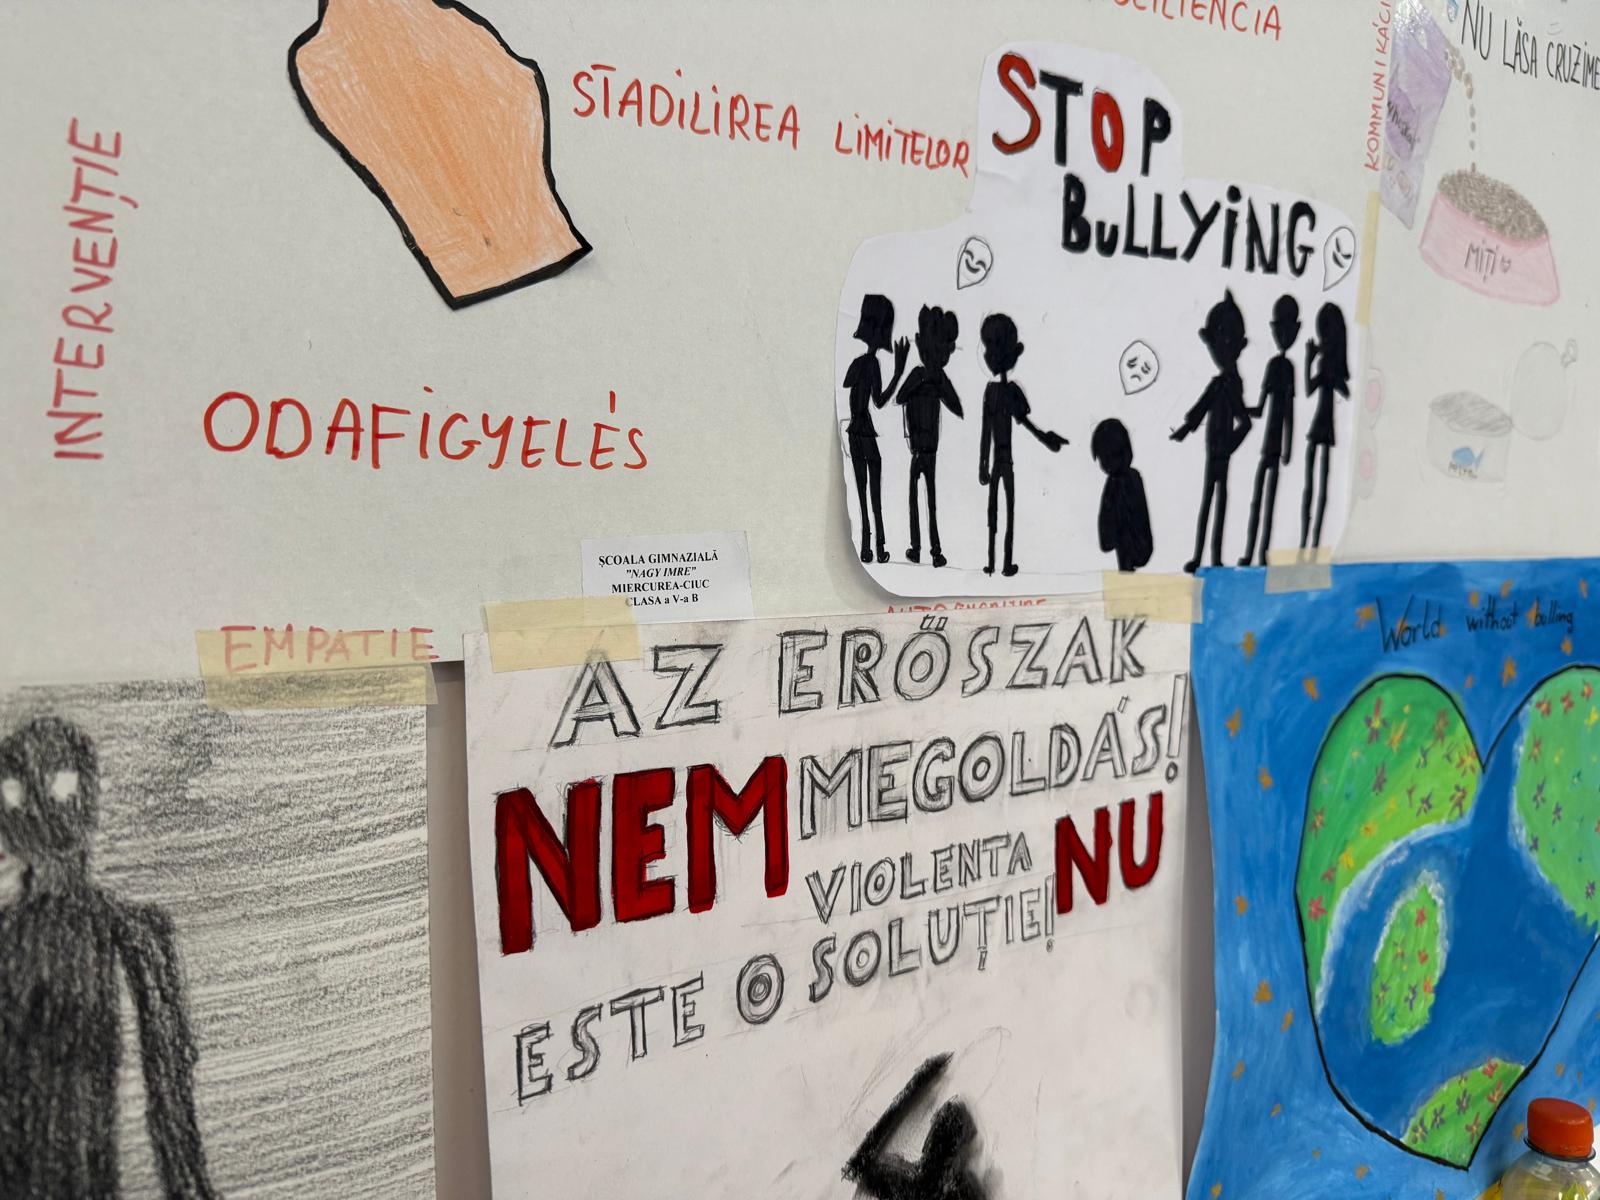 STADILIREA LIMITELOR
INTERVENȚIE
ODAFIGYELÉS
EMPATIE
STOP
BULLYING
KOMMUNIKÁCI
NU LĂSA CRUZIME
MIȚI
ȘCOALA GIMNAZIALĂ
"NAGY IMRE"
MIERCUREA-CIUC
CLASA a V-a B
AZ ERŐSZAK
NEM MEGOLDÁS!
VIOLENTA NU
ESTE O SOLUȚIE!
World without bulling